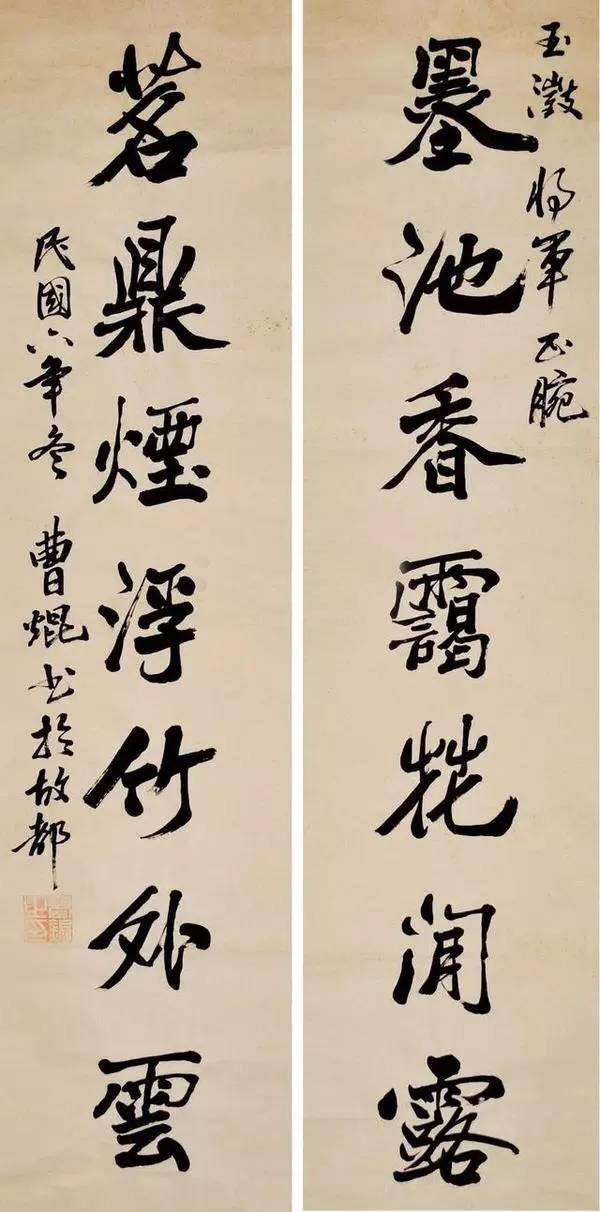 玉澂 將軍正腕
墨池香靄花間露
茗鼎煙浮竹外雲
民國六年冬 曹焜书於故都